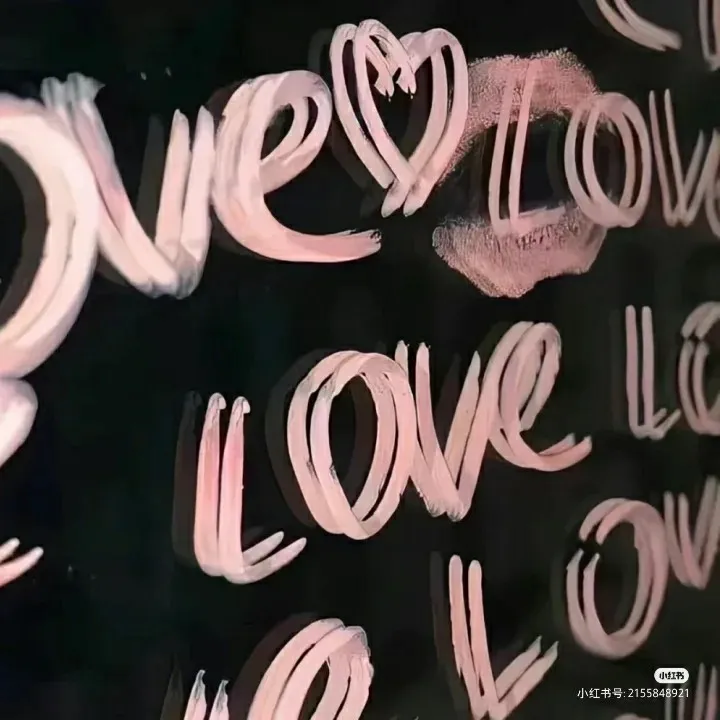 Love Love
Love Lo
L Ov
小红书
小红书号: 2155848921